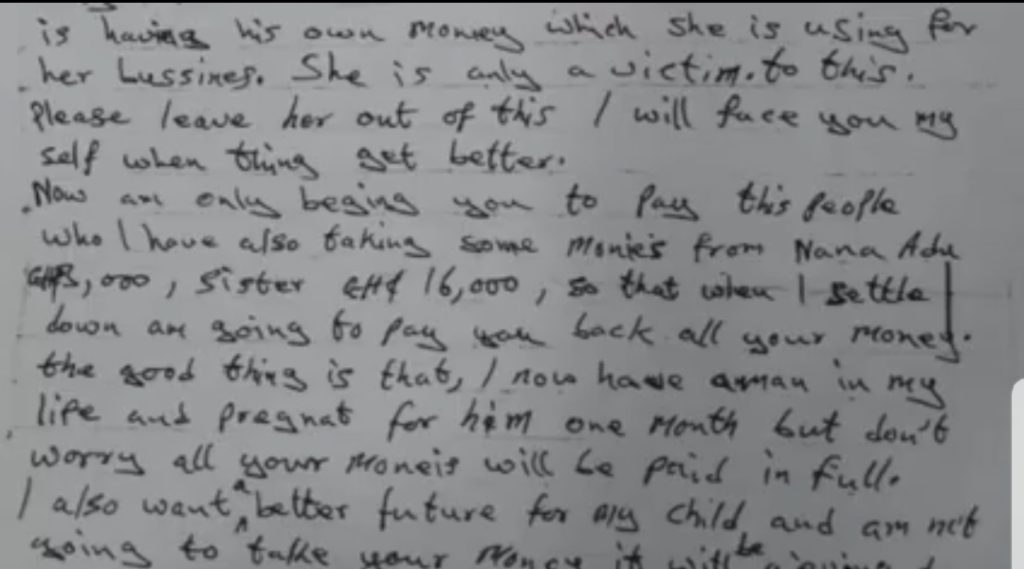 is having his own money which she is using for
her bussines. She is only a victim. to this.
Please leave her out of this I will face you my
self when thing get better.
Now am only beging you to Pay this People
who I have also taking some Monies from Nana Adu
GH¢3,000, sister GH¢ 16,000, so that when I settle
down am going to pay you back all your money.
the good thing is that, I now have aman in my
life and pregnat for him one Month but don't
worry all your Moneis will be paid in full.
I also want a better future for my child and am not
going to take your Money it will be